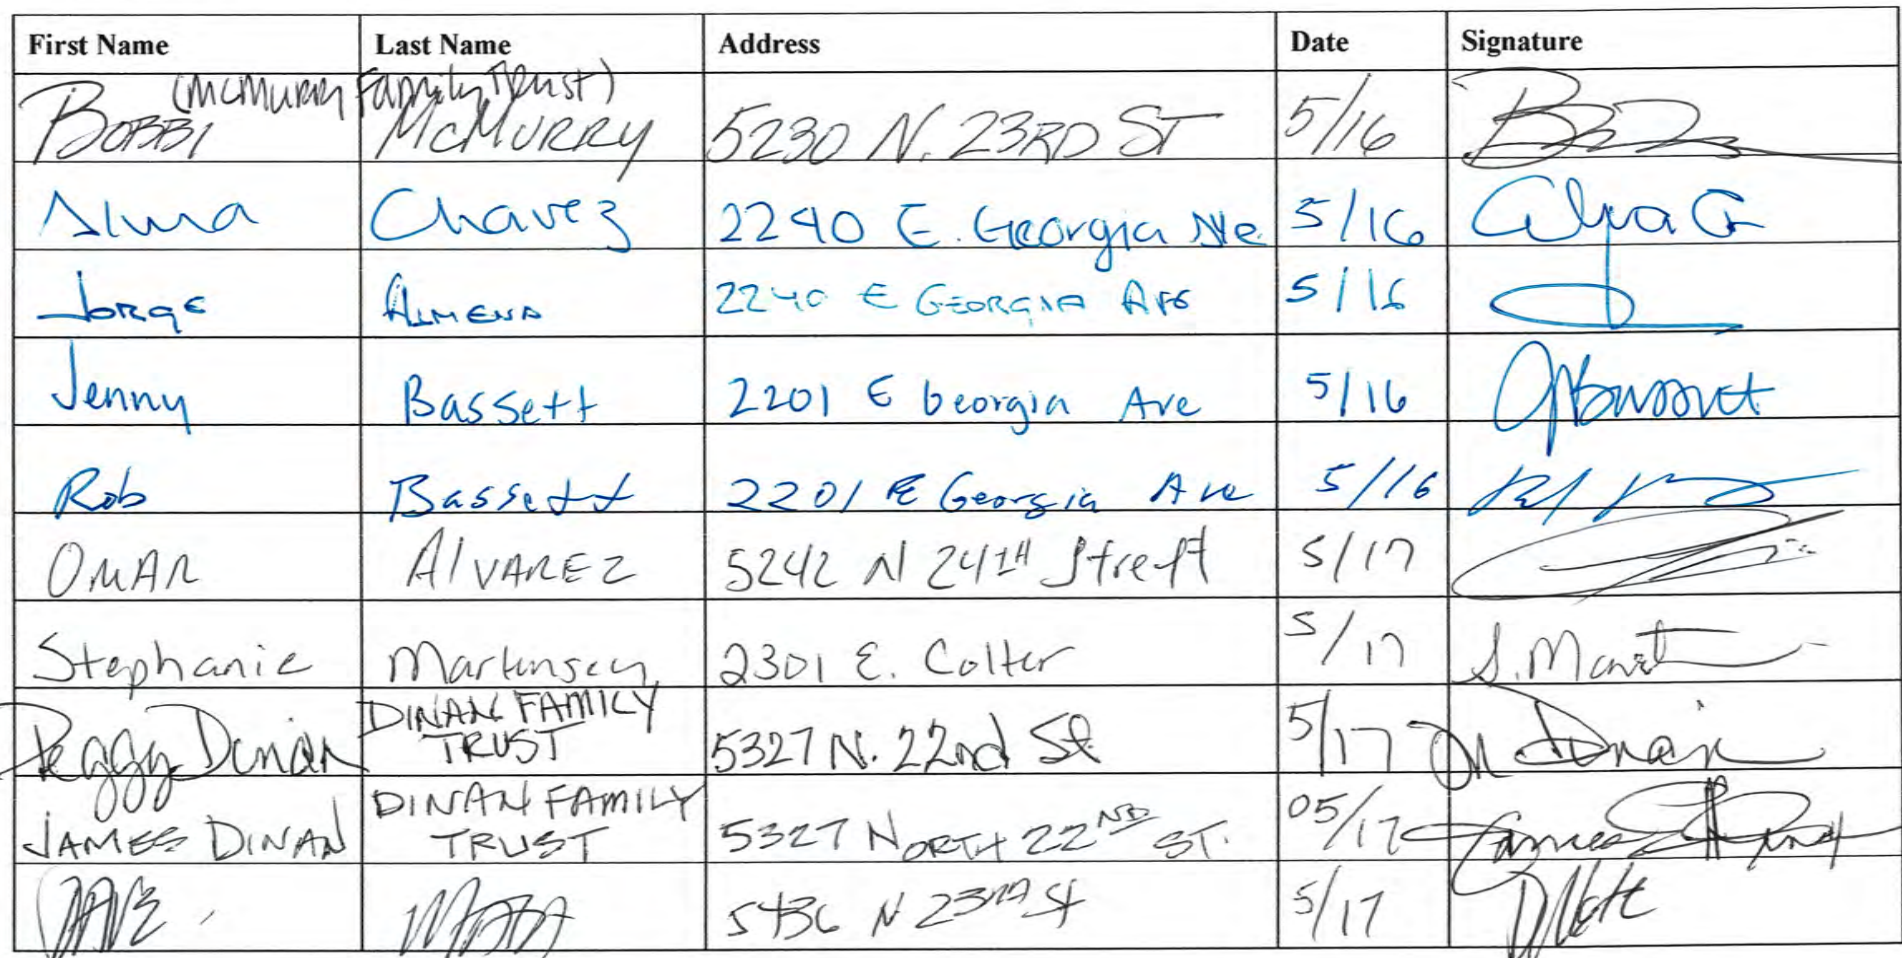 First Name Last Name Address Date Signature
(McMurry Family Trust)
BOBBI McMURRY 5230 N. 23RD ST 5/16
Alma Chavez 2240 E. Georgia Ave 5/16
Jorge ALMENA 2240 E GEORGIA AVE 5/16
Jenny Bassett 2201 E Georgia Ave 5/16 JBassett
Rob Bassett 2201 E Georgia Ave 5/16
OMAR AlVAREZ 5242 N 24TH Street 5/17
Stephanie Martensen 2301 E. Colter 5/17 S. Mart
Peggy Dinan DINAN FAMILY TRUST 5327 N. 22nd St 5/17 Dinan
JAMES DINAN DINAN FAMILY TRUST 5327 NORTH 22ND ST. 05/17 James
DAVE 5436 N 23RD St 5/17